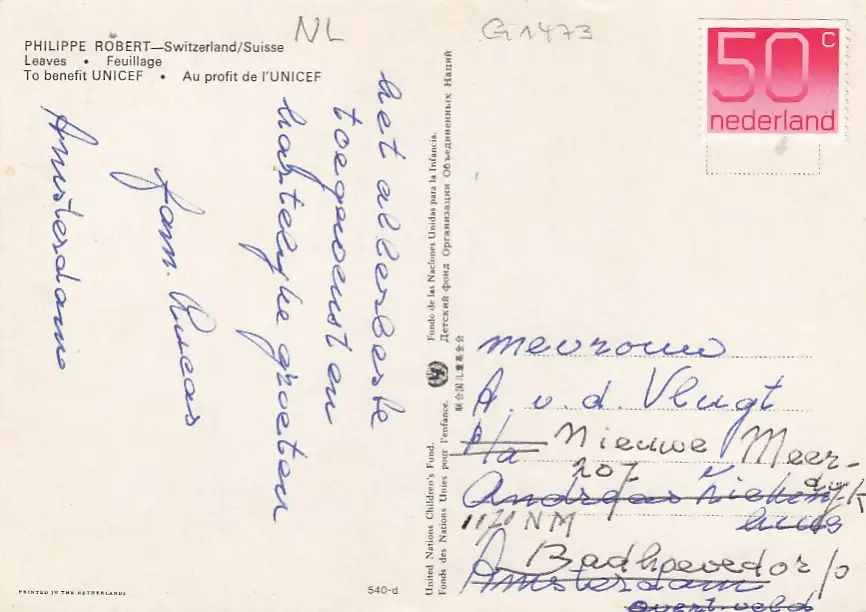 NL
G1473
PHILIPPE ROBERT—Switzerland/Suisse
Leaves • Feuillage
To benefit UNICEF • Au profit de l'UNICEF
50c
nederland
het allerbeste
toegewenst en
hartelijke groeten
fam. Lucas
Amsterdam
United Nations Children's Fund. Fondo de las Naciones Unidas para la Infancia.
Fonds des Nations Unies pour l'enfance. Детский фонд Организации Объединенных Наций
联合国儿童基金会
mevrouw
A. v.d. Vlugt
p/a Nieuwe Meer-
207 dijk
Andreas Ziekenhuis
1171 NM
Badhoevedorp
Amsterdam
overtveld
PRINTED IN THE NETHERLANDS
540-d